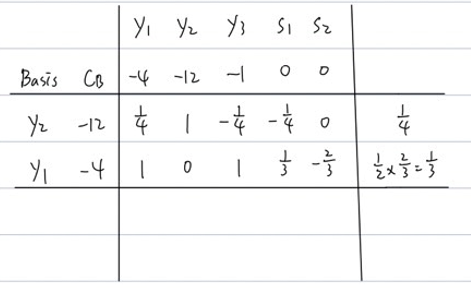 y₁ y₂ y₃ S₁ S₂
Basis C_B -4 -12 -1 0 0
y₂ -12 1/4 1 -1/4 -1/4 0 1/4
y₁ -4 1 0 1 1/3 -2/3 1/2 × 2/3 = 1/3